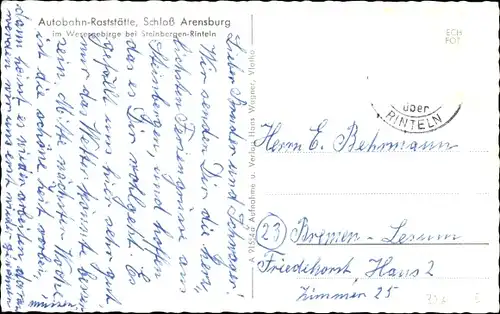 Autobahn-Raststätte, Schloß Arensburg
im Wesergebirge bei Steinbergen-Rinteln
Lieber Bruder und Schwager!
Wir senden Dir die herz-
lichsten Feriengrüsse aus
Steinbergen, und hoffen
das es Dir wohlgeht. Es
gefällt uns hier sehr gut
nur das Wetter könnte besser
sein. Mitte nächsten Woche
ist die schöne Zeit vorbei,
dann heisst es wieder arbeiten daran
müssen wir uns erst wieder gewöhnen
Aufnahme u. Verlag Hans Wagner, Vlotho
ECH
FOT
über
RINTELN
Herrn E. Behrmann
(23) Bremen-Lesum
Friedehorst, Haus 2
Zimmer 25